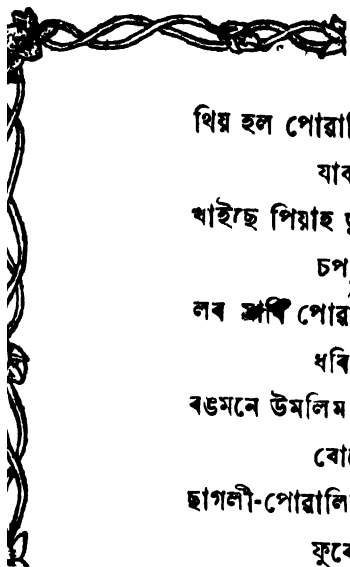 থিয় হল পোৱালি
যাব
খাইছে পিয়াহ
চপ
লৰ মাৰি পোৱা
ধৰি
ৰঙমনে উমলিম
বো
ছাগলী-পোৱালি
ফুৰে